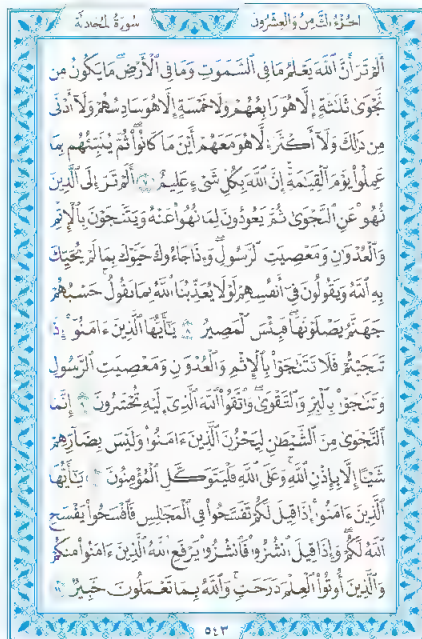 الجزء الثامن والعشرون سورة المجادلة
ألم تر أن الله يعلم ما في السموت وما في الأرض ما يكون من
نجوى ثلثة إلا هو رابعهم ولا خمسة إلا هو سادسهم ولا أدنى
من ذلك ولا أكثر إلا هو معهم أين ما كانوا ثم ينبئهم بما
عملوا يوم القيمة إن الله بكل شيء عليم ٧ ألم تر إلى الذين
نهوا عن النجوى ثم يعودون لما نهوا عنه ويتنجون بالإثم
والعدون ومعصيت الرسول وإذا جاءوك حيوك بما لم يحيك
به الله ويقولون في أنفسهم لولا يعذبنا الله بما نقول حسبهم
جهنم يصلونها فبئس المصير ٨ يأيها الذين ءامنوا إذا
تنجيتم فلا تتنجوا بالإثم والعدون ومعصيت الرسول
وتنجوا بالبر والتقوى واتقوا الله الذي إليه تحشرون ٩ إنما
النجوى من الشيطن ليحزن الذين ءامنوا وليس بضارهم
شيئا إلا بإذن الله وعلى الله فليتوكل المؤمنون ١٠ يأيها
الذين ءامنوا إذا قيل لكم تفسحوا في المجلس فافسحوا يفسح
الله لكم وإذا قيل انشزوا فانشزوا يرفع الله الذين ءامنوا منكم
والذين أوتوا العلم درجت والله بما تعملون خبير ١١
٥٤٣